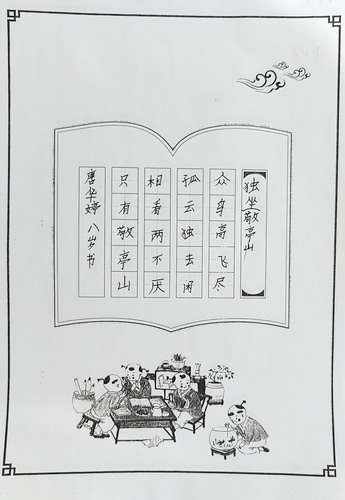 独坐敬亭山
众鸟高飞尽
孤云独去闲
相看两不厌
只有敬亭山
唐华婷 八岁书